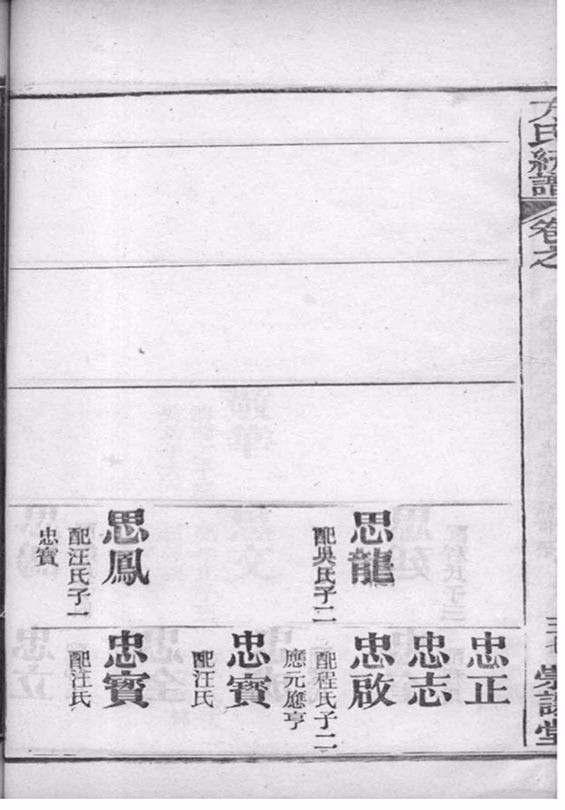 方氏統譜
卷之
思龍
配吳氏子二
思鳳
配汪氏子一
忠寶
忠正
忠志
忠啟
配程氏子二
應元應亨
忠寶
配汪氏
忠寶
配汪氏